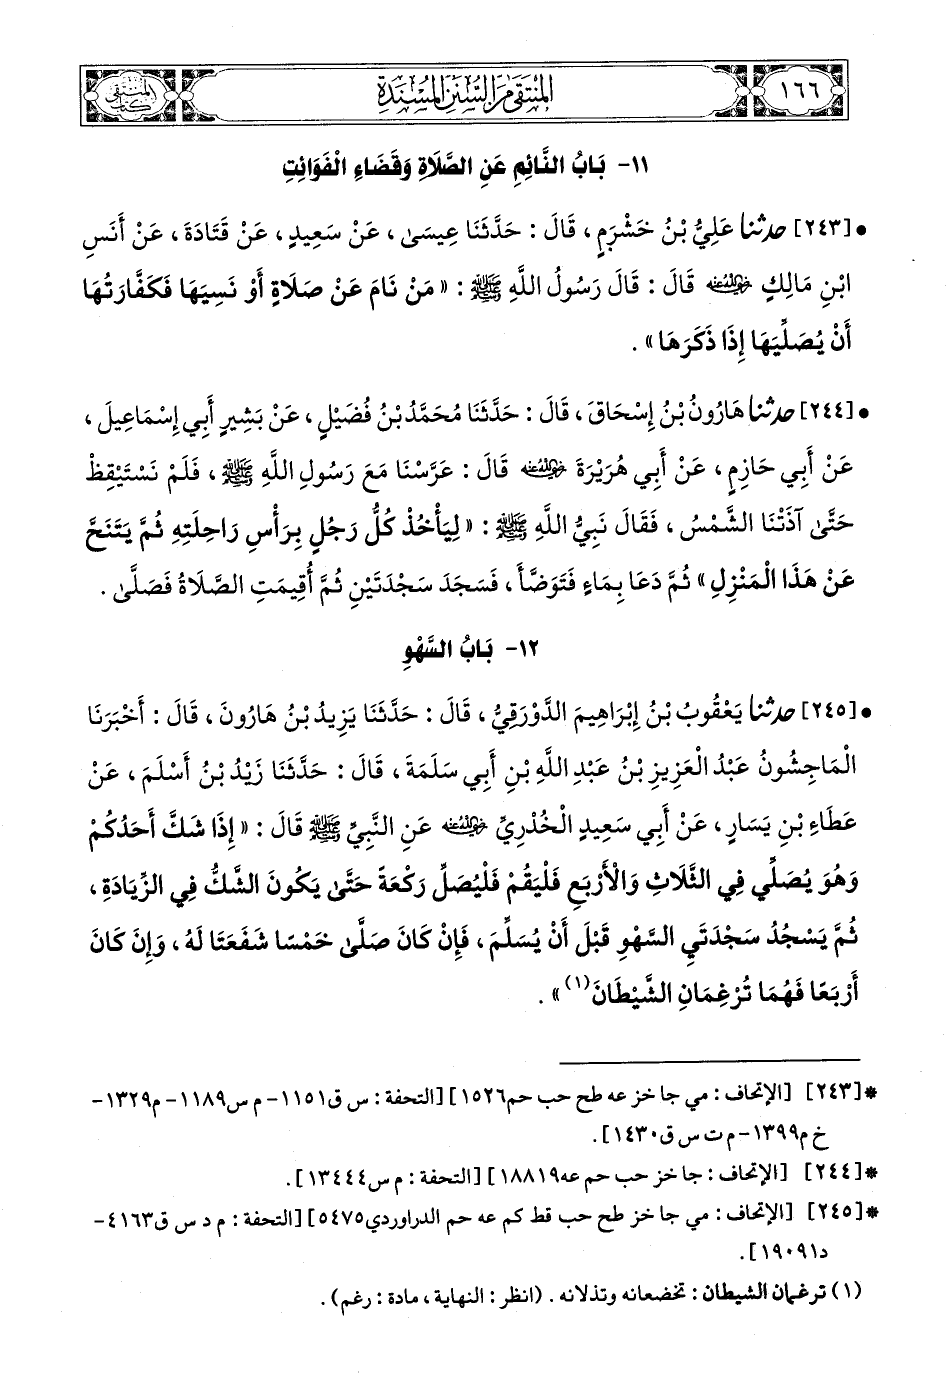 ١٦٦
المنتقى من السنن المسندة
كتاب المنتقى
١١- بَابُ النَّائِمِ عَنِ الصَّلَاةِ وَقَضَاءِ الْفَوَائِتِ
• [٢٤٣] حدثنا عَلِيُّ بْنُ خَشْرَمٍ ، قَالَ : حَدَّثَنَا عِيسَىٰ ، عَنْ سَعِيدٍ، عَنْ قَتَادَةَ ، عَنْ أَنَسِ
ابْنِ مَالِكٍ رضي الله عنه قَالَ : قَالَ رَسُولُ اللَّهِ ﷺ : « مَنْ نَامَ عَنْ صَلَاةٍ أَوْ نَسِيَهَا فَكَفَّارَتُهَا
أَنْ يُصَلِّيَهَا إِذَا ذَكَرَهَا » .
• [٢٤٤] حدثنا هَارُونُ بْنُ إِسْحَاقَ ، قَالَ : حَدَّثَنَا مُحَمَّدُ بْنُ فُضَيْلٍ ، عَنْ بَشِيرٍ أَبِي إِسْمَاعِيلَ ،
عَنْ أَبِي حَازِمٍ ، عَنْ أَبِي هُرَيْرَةَ رضي الله عنه قَالَ : عَرَّسْنَا مَعَ رَسُولِ اللَّهِ ﷺ ، فَلَمْ نَسْتَيْقِظْ
حَتَّىٰ آذَتْنَا الشَّمْسُ ، فَقَالَ نَبِيُّ اللَّهِ ﷺ : « لِيَأْخُذْ كُلُّ رَجُلٍ بِرَأْسِ رَاحِلَتِهِ ثُمَّ يَتَنَحَّ
عَنْ هَذَا الْمَنْزِلِ » ثُمَّ دَعَا بِمَاءٍ فَتَوَضَّأَ ، فَسَجَدَ سَجْدَتَيْنِ ثُمَّ أُقِيمَتِ الصَّلَاةُ فَصَلَّىٰ .
١٢- بَابُ السَّهْوِ
• [٢٤٥] حدثنا يَعْقُوبُ بْنُ إِبْرَاهِيمَ الدَّوْرَقِيُّ ، قَالَ : حَدَّثَنَا يَزِيدُ بْنُ هَارُونَ ، قَالَ : أَخْبَرَنَا
الْمَاجِشُونُ عَبْدُ الْعَزِيزِ بْنُ عَبْدِ اللَّهِ بْنِ أَبِي سَلَمَةَ ، قَالَ : حَدَّثَنَا زَيْدُ بْنُ أَسْلَمَ ، عَنْ
عَطَاءِ بْنِ يَسَارٍ ، عَنْ أَبِي سَعِيدٍ الْخُدْرِيِّ رضي الله عنه عَنِ النَّبِيِّ ﷺ قَالَ : « إِذَا شَكَّ أَحَدُكُمْ
وَهُوَ يُصَلِّي فِي الثَّلَاثِ وَالْأَرْبَعِ فَلْيَقُمْ فَلْيُصَلِّ رَكْعَةً حَتَّىٰ يَكُونَ الشَّكُّ فِي الزِّيَادَةِ ،
ثُمَّ يَسْجُدُ سَجْدَتَيِ السَّهْوِ قَبْلَ أَنْ يُسَلِّمَ ، فَإِنْ كَانَ صَلَّىٰ خَمْسًا شَفَعَتَا لَهُ ، وَإِنْ كَانَ
أَرْبَعًا فَهُمَا تُرْغِمَانِ الشَّيْطَانَ(١) » .
*[٢٤٣] [الإتحاف : مي جا خز عه طح حب حم١٥٢٦] [التحفة : س ق١١٥١- م س١١٨٩- م١٣٢٩-
خ م١٣٩٩- م ت س ق١٤٣٠].
*[٢٤٤] [الإتحاف : جا خز حب حم عه١٨٨١٩] [التحفة : م س١٣٤٤٤].
*[٢٤٥] [الإتحاف : مي جا خز طح حب قط كم عه حم الدراوردي٥٤٧٥] [التحفة : م د س ق٤١٦٣-
د١٩٠٩١].
(١) ترغمان الشيطان : تخضعانه وتذلانه . (انظر : النهاية ، مادة : رغم) .